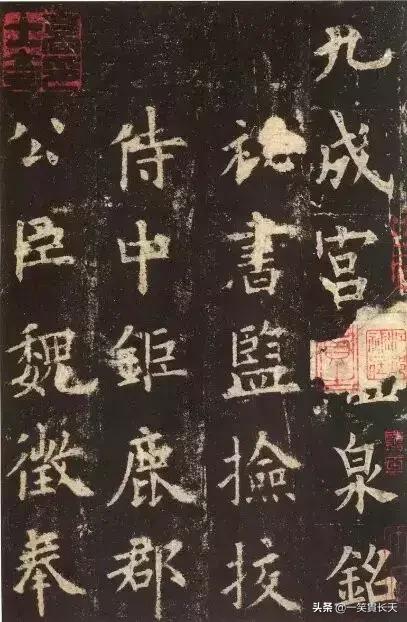 九成宮泉銘
祕書監撿挍
侍中鉅鹿郡
公臣魏徵奉
头条 @一笑貴長天